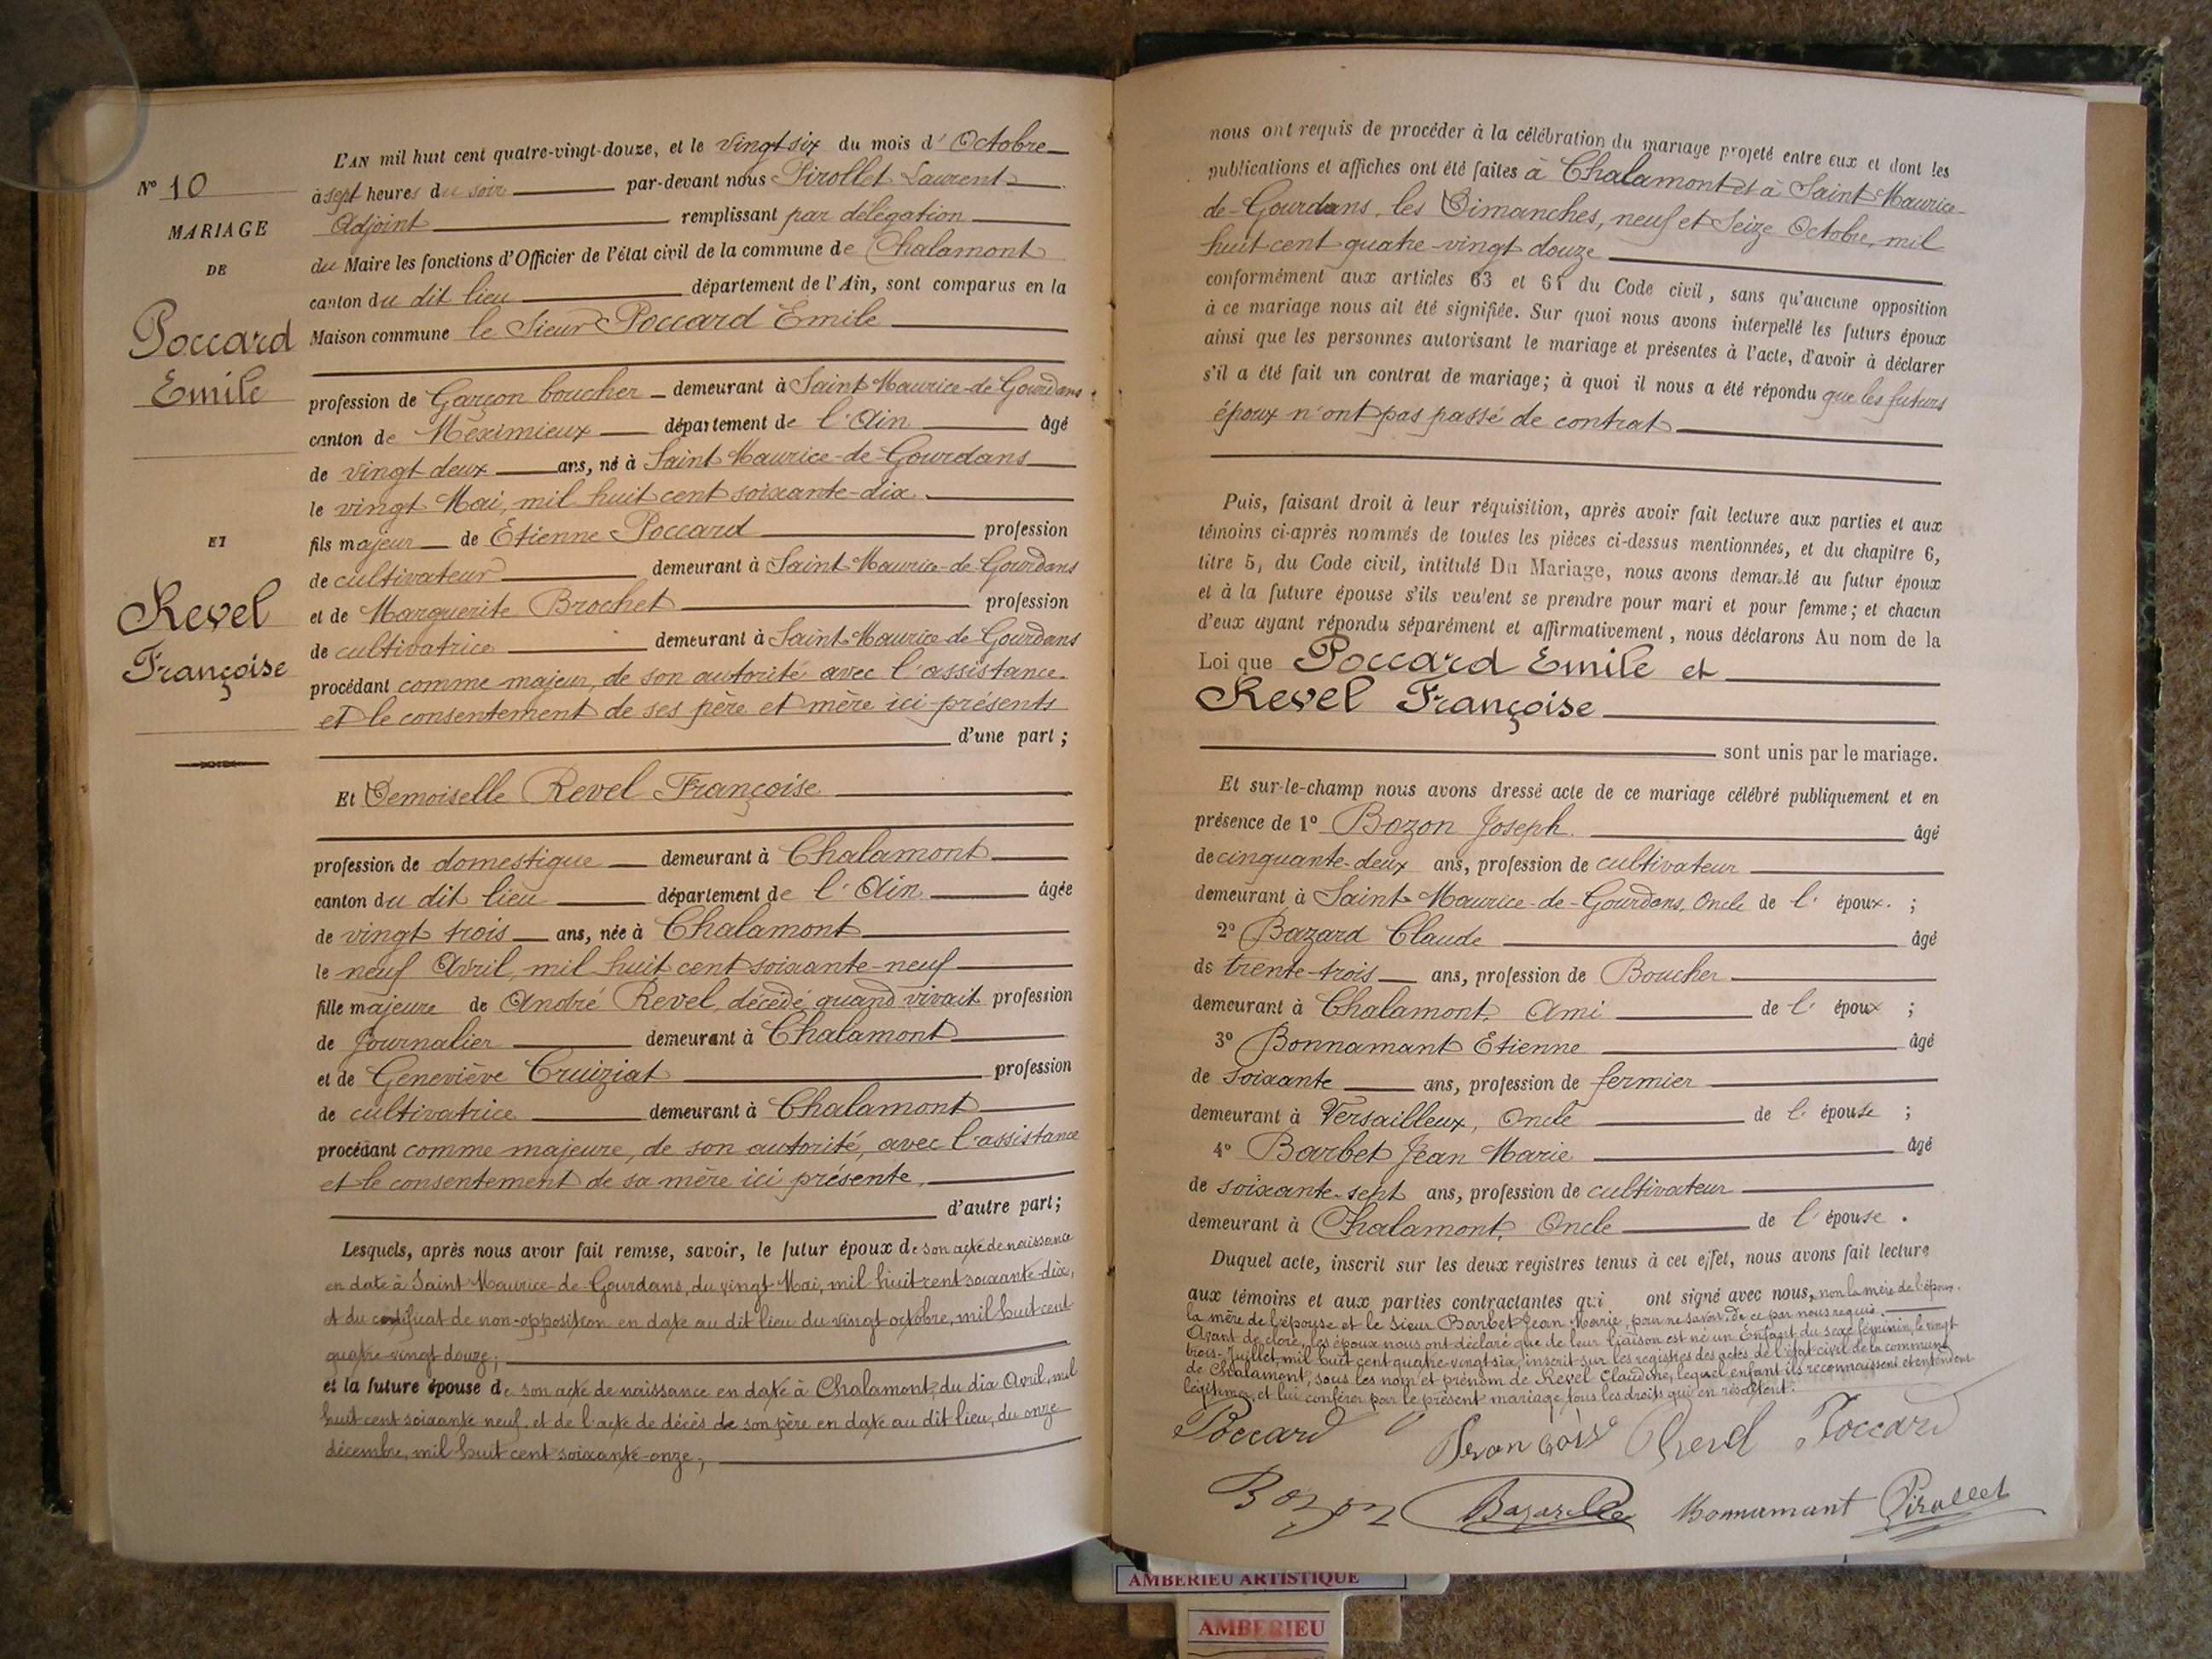 N° 10
MARIAGE
DE
Poccard
Emile
ET
Revel
Françoise
L'AN mil huit cent quatre-vingt-douze, et le vingt-six du mois d'Octobre
à sept heures du soir par-devant nous Pirollet Laurent
Adjoint remplissant par délégation
du Maire les fonctions d'Officier de l'état civil de la commune de Chalamont
canton du dit lieu département de l'Ain, sont comparus en la
Maison commune le Sieur Poccard Emile
profession de Garçon boucher demeurant à Saint-Maurice-de-Gourdans
canton de Meximieux département de l'Ain âgé
de vingt deux ans, né à Saint Maurice-de-Gourdans
le vingt Mai, mil huit cent soixante-dix
fils majeur de Etienne Poccard profession
de cultivateur demeurant à Saint-Maurice-de-Gourdans
et de Marguerite Brochet profession
de cultivatrice demeurant à Saint-Maurice-de-Gourdans
procédant comme majeur, de son autorité avec l'assistance
et le consentement de ses père et mère ici présents
d'une part ;
Et Demoiselle Revel Françoise
profession de domestique demeurant à Chalamont
canton du dit lieu département de l'Ain âgée
de vingt trois ans, née à Chalamont
le neuf Avril, mil huit cent soixante-neuf
fille majeure de André Revel, décédé quand vivait profession
de Journalier demeurant à Chalamont
et de Geneviève Cruiziat profession
de cultivatrice demeurant à Chalamont
procédant comme majeure, de son autorité, avec l'assistance
et le consentement de sa mère ici présente,
d'autre part ;
Lesquels, après nous avoir fait remise, savoir, le futur époux de son acte de naissance
en date à Saint Maurice-de-Gourdans, du vingt Mai, mil huit cent soixante-dix,
et du certificat de non-opposition en date au dit lieu du vingt octobre, mil huit cent
quatre-vingt douze ;
et la future épouse de son acte de naissance en date à Chalamont, du dix Avril, mil
huit cent soixante neuf, et de l'acte de décès de son père en date au dit lieu, du onze
décembre, mil huit cent soixante-onze ;
nous ont requis de procéder à la célébration du mariage projeté entre eux et dont les
publications et affiches ont été faites à Chalamont et à Saint Maurice-
de-Gourdans, les Dimanches, neuf et Seize Octobre, mil
huit cent quatre-vingt douze
conformément aux articles 63 et 64 du Code civil, sans qu'aucune opposition
à ce mariage nous ait été signifiée. Sur quoi nous avons interpellé les futurs époux
ainsi que les personnes autorisant le mariage et présentes à l'acte, d'avoir à déclarer
s'il a été fait un contrat de mariage ; à quoi il nous a été répondu que les futurs
époux n'ont pas passé de contrat
Puis, faisant droit à leur réquisition, après avoir fait lecture aux parties et aux
témoins ci-après nommés de toutes les pièces ci-dessus mentionnées, et du chapitre 6,
titre 5, du Code civil, intitulé Du Mariage, nous avons demandé au futur époux
et à la future épouse s'ils veulent se prendre pour mari et pour femme ; et chacun
d'eux ayant répondu séparément et affirmativement, nous déclarons Au nom de la
Loi que Poccard Emile et
Revel Françoise
sont unis par le mariage.
Et sur-le-champ nous avons dressé acte de ce mariage célébré publiquement et en
présence de 1° Bozon Joseph. âgé
de cinquante-deux ans, profession de cultivateur
demeurant à Saint-Maurice-de-Gourdans, Oncle de l'époux. ;
2° Bazard Claude âgé
de trente-trois ans, profession de Boucher
demeurant à Chalamont, Ami de l'époux ;
3° Bonnamant Etienne âgé
de Soixante ans, profession de fermier
demeurant à Versailleux, Oncle de l'épouse ;
4° Barbet Jean Marie âgé
de soixante-sept ans, profession de cultivateur
demeurant à Chalamont, Oncle de l'épouse.
Duquel acte, inscrit sur les deux registres tenus à cet effet, nous avons fait lecture
aux témoins et aux parties contractantes qui ont signé avec nous, non la mère de l'époux.
la mère de l'épouse et le Sieur Barbet Jean Marie, pour ne savoir. de ce par nous requis.
Avant de clore, les époux nous ont déclaré que de leur liaison est né un Enfant du sexe féminin, le vingt
trois-Juillet, mil huit cent quatre-vingt six, inscrit sur les registres des actes de l'état civil de la commune
de Chalamont, sous les nom et prénom de Revel Claudine, lequel enfant ils reconnaissent et entendent
légitimer, et lui conférer par le présent mariage tous les droits qui en résultent.
Poccard François Revel Poccard
Bozon Bazard Bonnamant Pirollet
AMBERIEU ARTISTIQUE
AMBERIEU